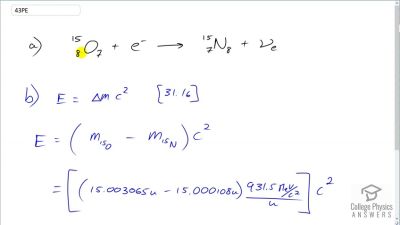 43PE
a) ¹⁵₈O₇ + e⁻ → ¹⁵₇N₈ + νₑ
b) E = Δm c² [31.16]
E = (m₁₅O − m₁₅N) c²
= [(15.003065u − 15.000108u) 931.5 MeV/c² / u] c²
College Physics
ANSWERS